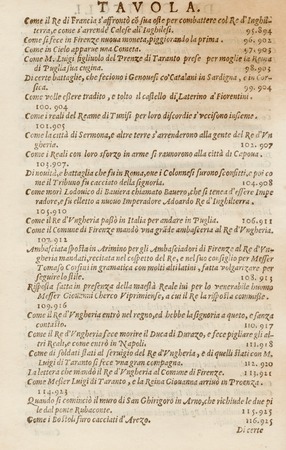 TAVOLA.
Come il Re di Francia s'affrontò cõ sua oste per combattere col Re d'Inghil-
terra, e come s'arrendè Calese all'Inghilesi. 95.894
Come si fece in Firenze nuoua moneta, piggiorando la prima. 96.902
Come in Cielo apparue una Cometa. 97.903
Come M. Luigi figliuolo del Prenze di Taranto prese per moglie la Reina
di Puglia sua cugina. 98.903
Di certe battaglie, che feciono i Genouesi cõ Catalani in Sardigna, e in Cor-
sica. 99.903
Come volle essere tradito, e tolto il castello di Laterino a' Fiorentini.
100.904
Come i reali del Reame di Tunisi per loro discordie s'vccisono insieme.
101.905
Come la città di Sermona, e altre terre s'arrenderono alla gente del Re d'Vn
gheria. 102.907
Come i Reali con loro sforzo in arme si raunorono alla città di Capoua.
103.907.
Di nouità, e battaglia che fu in Roma, one i Colonnesi furono sconfitti, e poi co
me il Tribuno fu cacciato della signoria. 104.908
Come morì Lodouico di Bauiera chiamato Bauero, che si tenea d'essere Impe
radore, e fu eletto a nuouo Imperadore Adoardo Re d'Inghilterra.
105.910
Come il Re d'Vngheria passò in Italia per andare in Puglia. 106.911
Come il Comune di Firenze mandò vna grãde ambasceria al Re d'Vngheria.
107.911
Ambasciata sposta in Arimino per gli Ambasciadori di Firenze al Re d'Vn-
gheria mandati, recitata nel cospetto del Re, e nel suo consiglio per Messer
Tomaso Corsini in gramatica con molti altilatini, fatta volgarizare per
seguire lo stile. 108.914
Risposta fatta in presenza della maestà Reale iui per lo venerabile huomo
Messer Giouanni cherco Vipriminse, a cui il Re la risposta commise.
109.916
Come il Re d'Vngheria entrò nel regno, ed hebbe la signoria a queto, e sanza
contasto. 110.917
Come il Re d'Vngheria fece morire il Duca di Durazo, e fece pigliare gli al-
tri Reali, e come entrò in Napoli. 111.918
Come di soldati stati al seruigio del Re d'Vngheria, e di quelli stati con M.
Luigi di Taranto si fece vna gran compagna. 112.920
La lettera che mandò il Re d'Vngheria al Comune di Firenze. 113.921
Come Messer Luigi di Taranto, e la Reina Giouanna arriuò in Proenza.
114.923
Quando si cominciò il muro di San Ghirigoro ĩ Arno, che richiude le due pi
le dal ponte Rubaconte. 115.925
Come i Bostoli furo cacciati d'Arezo. 116.925
Di certe